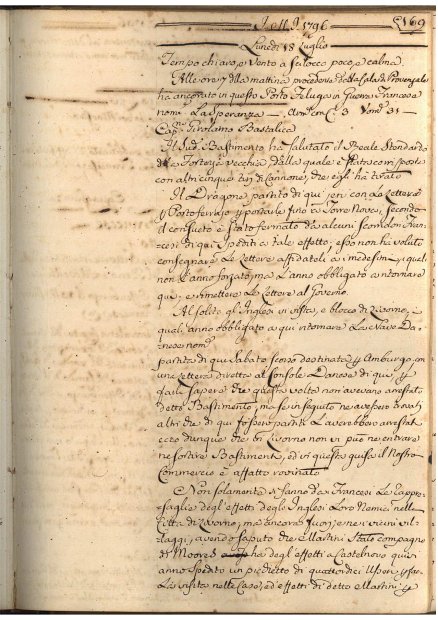 1796
169
Lunedi 18 Luglio
Tempo chiaro, e vento a Scilocco poco, e calma.
Alle ore 7 della mattina procedente dalla Cala di Provenzale
ha ancorato in questo Porto Feluga a Guerra Francese
nom.ª La Speranza — Arm.ª in C. 3 Uom.i 31 —
Cap.n Girolamo Bastalica
Il Sud.º Bastimento ha salutato il Reale Stendardo
della Fortezza vecchia, dalla quale è stato corrisposto
con altri cinque tiri di Cannone, che egli ha tirato
Il Dragone partito di qui jeri con Le Lettere
p Portoferrajo p portarle fino a Torre Nuova, secondo
il consueto è stato fermato da alcuni scorridori Fran-
cesi di qui Spediti a tale effetto; e esso non ha voluto
consegnare Le Lettere affidateli a i medesimi, i quali
non l'anno forzato, ma L'anno obbligato a ritornare
qui, e rimettere Le Lettere al Governo.
Al solito gl'Inglesi in vista, e blocco di Livorno, i
quali anno obbligato a qui ritornare La Nave Da-
nese nom.ª
partita di qui Sabato scorso destinata p Amburgo, con
una Lettera diretta al Console Danese di qui p
farli sapere che questa volta non avevano arrestato
detto Bastimento, ma se in seguito ne avessero trovati
altri che di qui fossero partiti Li averebbero arrestati
ecco dunque che di Livorno non vi può ne entrare
ne sortire Bastimenti, ed in questa guisa il Nostro
Commercio è affatto rovinato
Non solamente si fanno da Francesi Le rappre-
saglie degl'effetti degl'Inglesi Loro Nemici nella
Città di Livorno, ma ancora fuori, e ne i vicini vil-
laggi, avendo saputo che Martini Stato compagno
di Moore ha degl'effetti a Castelnovo quivi
anno spedito un picchetto di quattordici Uomi p fare
La visita nelle Case, ed effetti di detto Martini p